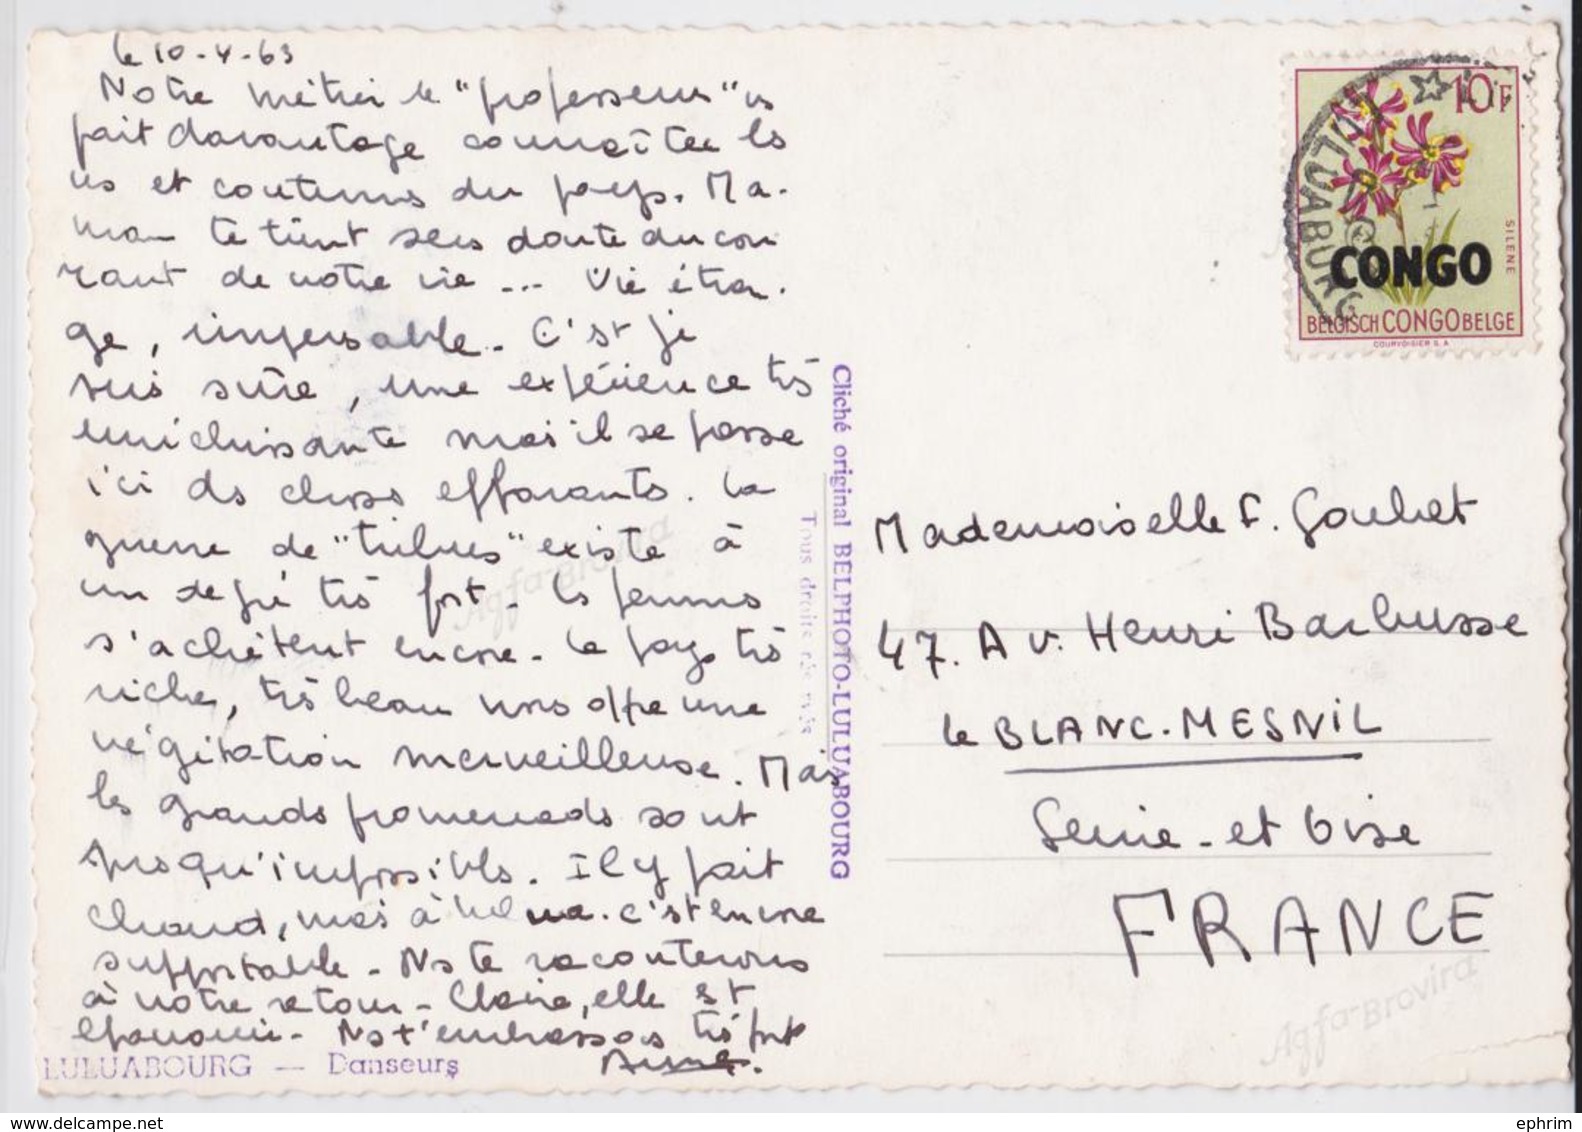 le 10-4-63
Notre métier de "professeurs" ns
fait davantage connaître les
us et coutumes du pays. Ma-
man te tient sans doute du cou
rant de notre vie ... Vie étran-
ge, impensable. C'est je
suis sûre, une expérience très
enrichissante mais il se passe
ici des choses effarantes. La
guerre de "tribus" existe à
un degré très fort. Les femmes
s'achètent encore. Le pays très
riche, très beau nous offre une
végétation merveilleuse. Mais
les grandes promenades sont
presqu'impossibles. Il y fait
chaud, mais à c'est encore
supportable. Ns te raconterons
à notre retour. Claire, elle est
épanouie. Ns t'embrassons très fort
Anne.
LULUABOURG — Danseurs
Cliché original BELPHOTO-LULUABOURG
Tous droits réservés
Agfa-Brovira
10F
SILENE
CONGO
BELGISCH CONGO BELGE
COURVOISIER S.A.
LULUABOURG
Mademoiselle F. Gouhet
47. Av. Henri Barbusse
le BLANC-MESNIL
Seine-et Oise
FRANCE
Agfa-Brovira